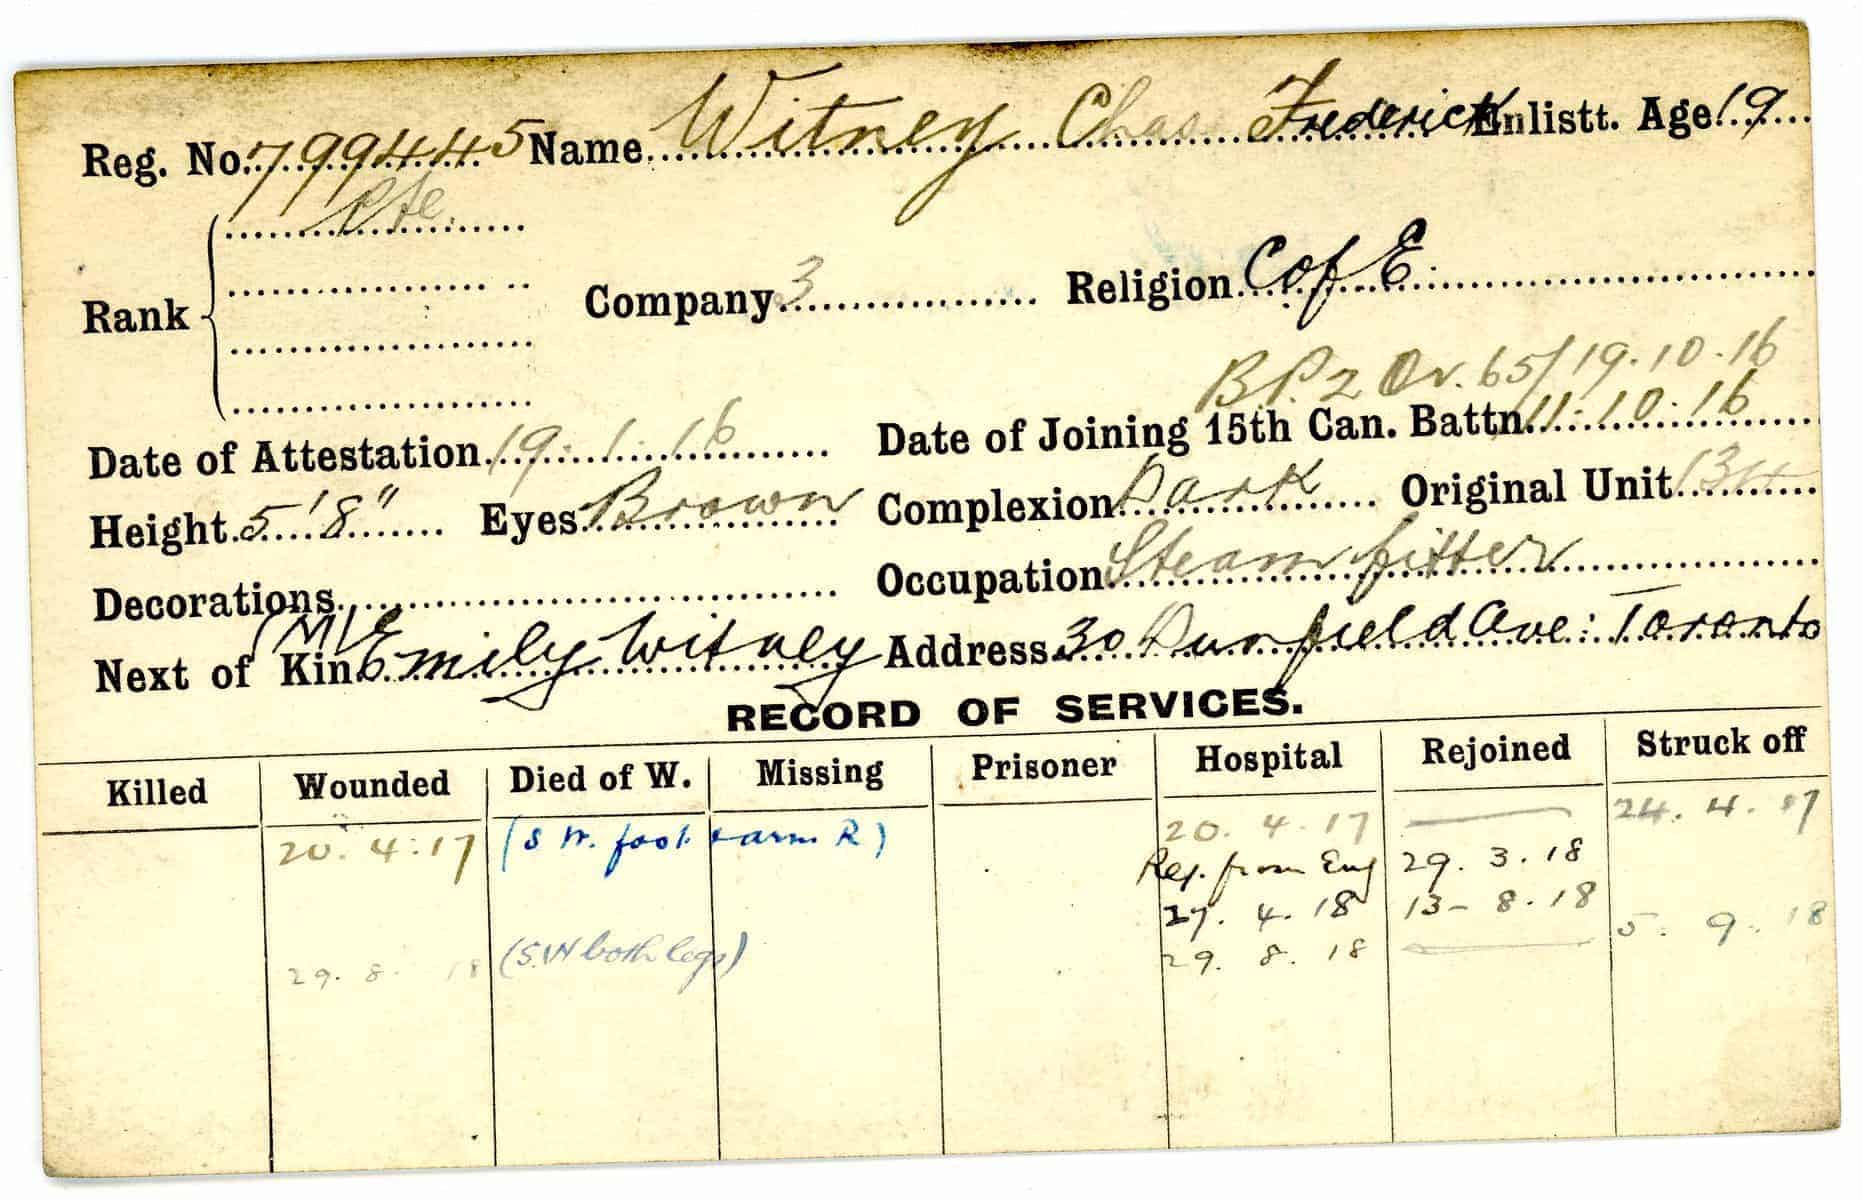 Reg. No. 799445 Name Witney Chas Frederick Enlistt. Age 19
Pte.
Rank Company 3 Religion C of E.
B.P. 2 Or. 65/19.10.16
Date of Attestation 19.1.16 Date of Joining 15th Can. Battn. 11.10.16
Height 5'8" Eyes Brown Complexion Dark Original Unit 134
Decorations Occupation Steamfitter
(M)
Next of Kin Emily Witney Address 30 Dunfield Ave: Toronto
RECORD OF SERVICES.
Killed Wounded Died of W. Missing Prisoner Hospital Rejoined Struck off
20.4.17 (S W. foot & arm R) 20.4.17 — 24.4.17
Rej. from Eng 29.3.18
27.4.18 13-8.18
29.8.18 (S.W both legs) 29.8.18 — 5.9.18